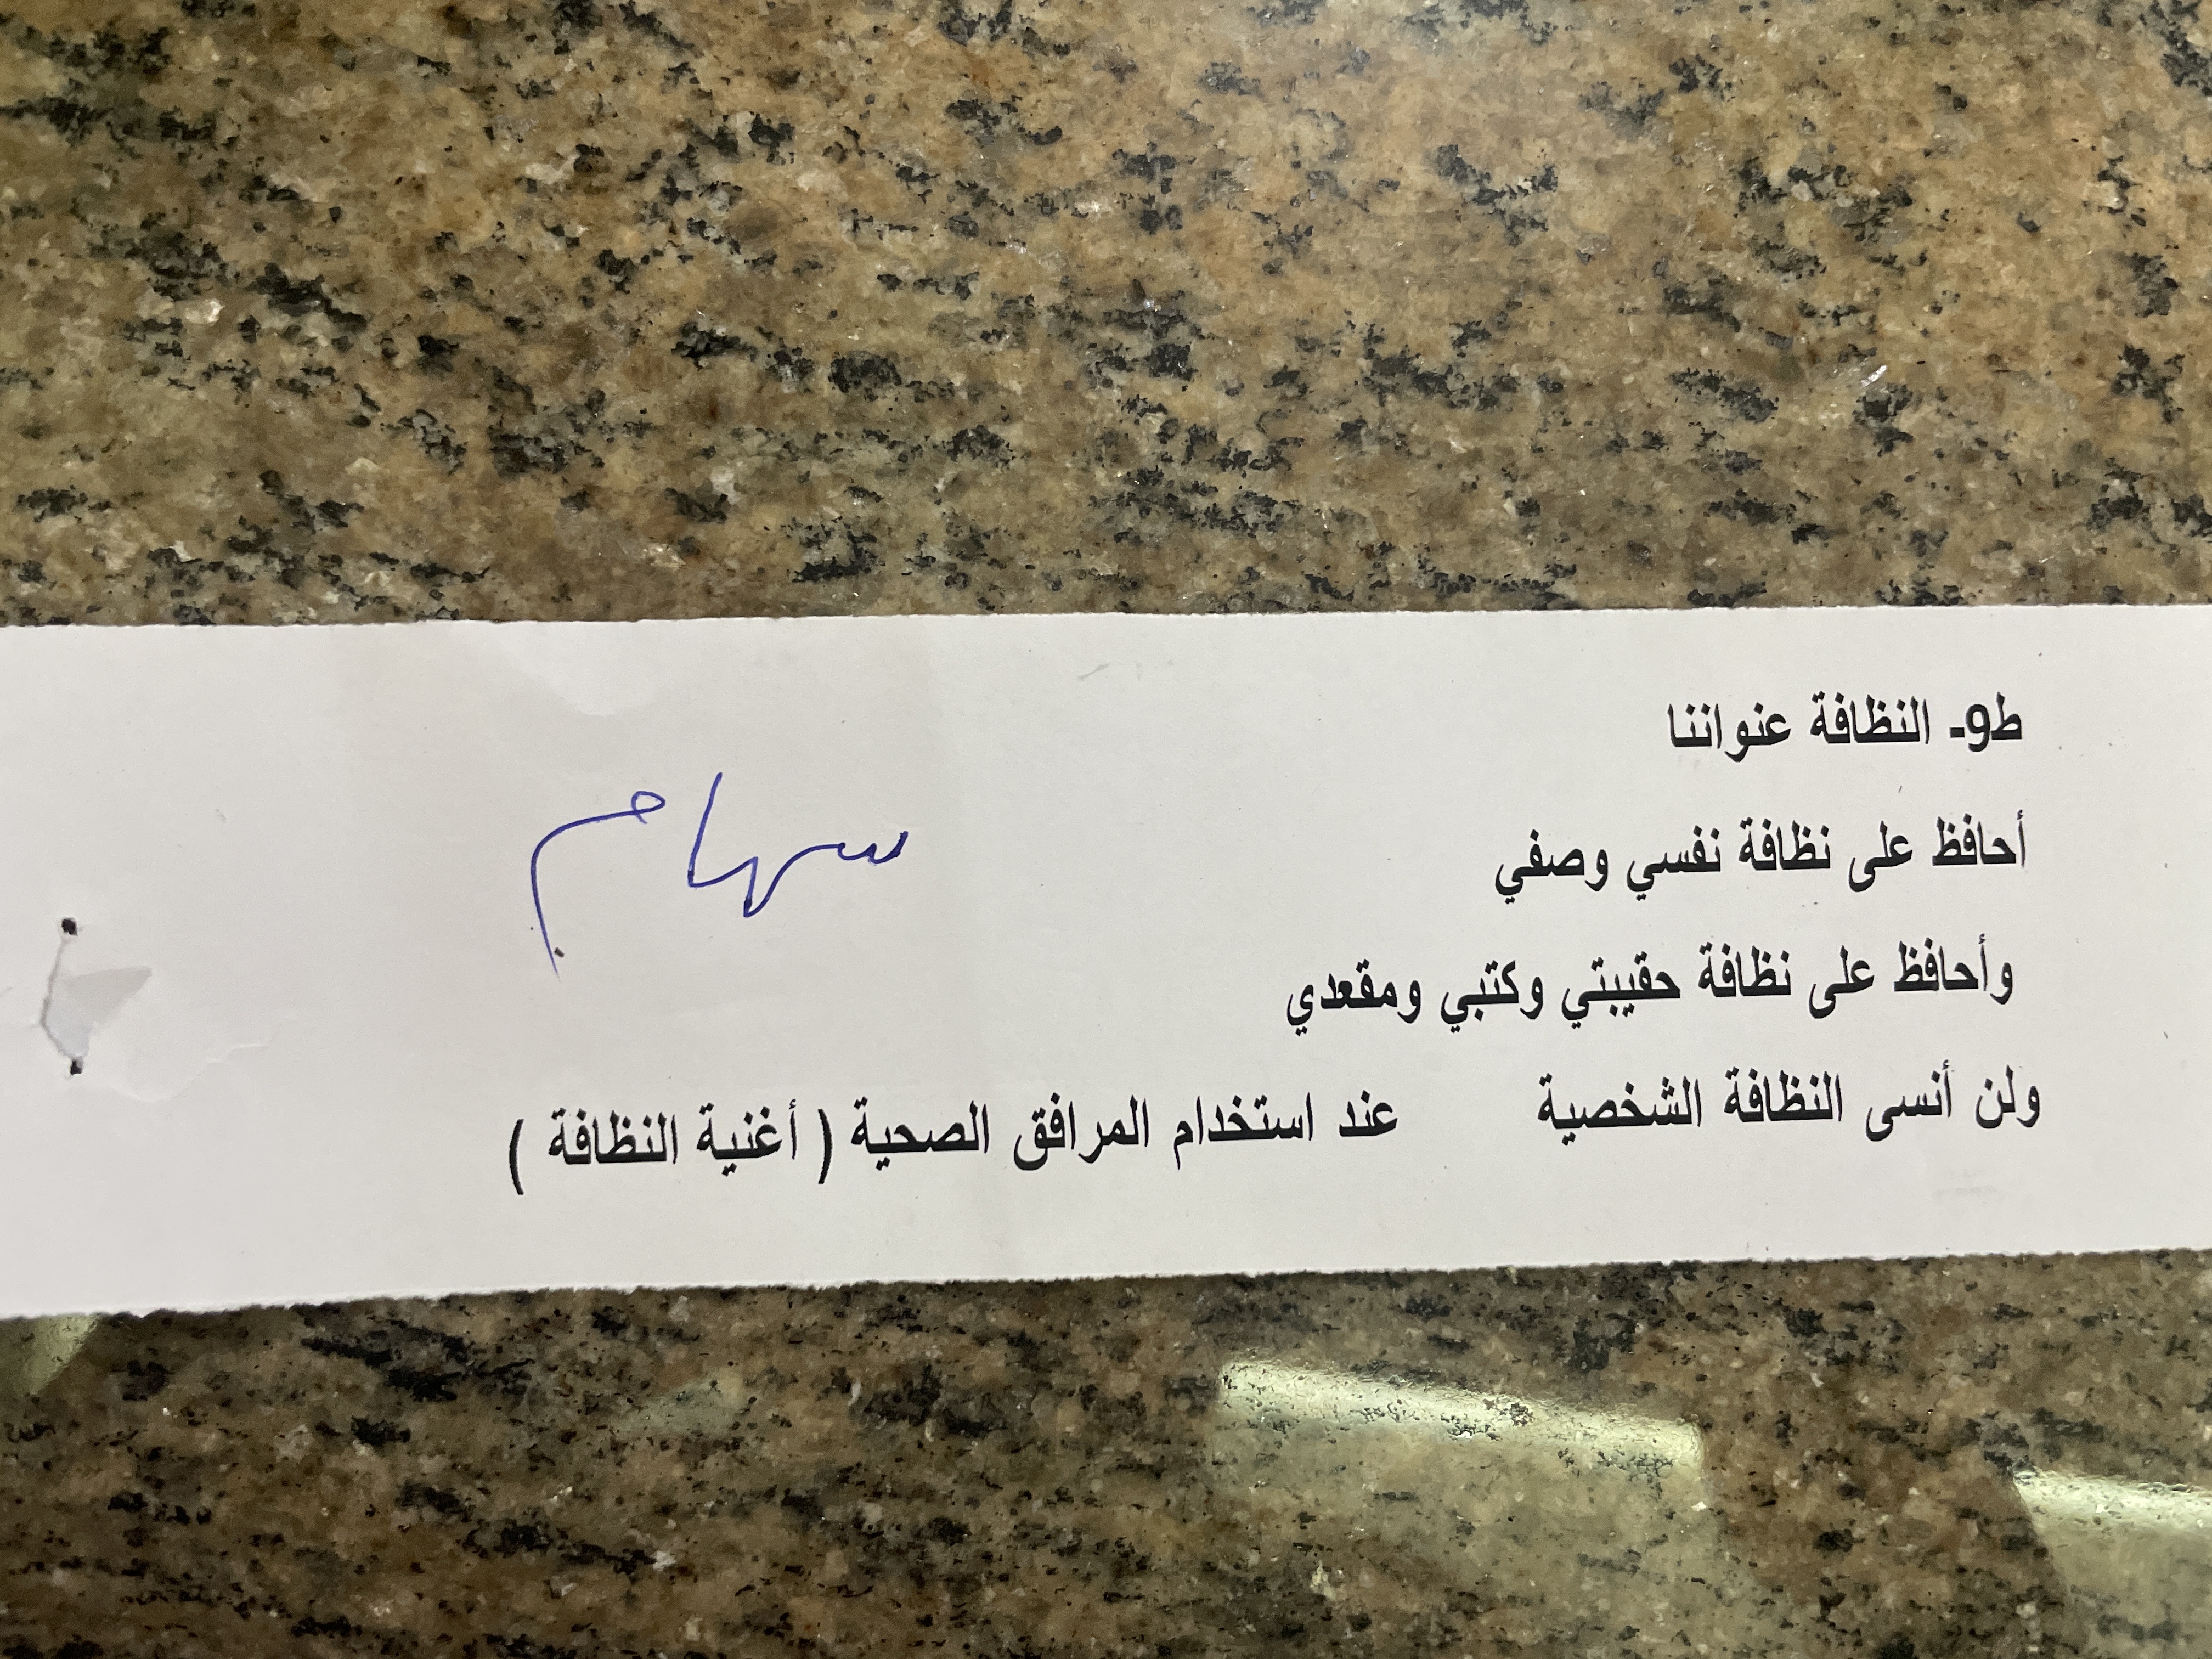 ط9- النظافة عنواننا
سهام
أحافظ على نظافة نفسي وصفي
وأحافظ على نظافة حقيبتي وكتبي ومقعدي
ولن أنسى النظافة الشخصية عند استخدام المرافق الصحية ( أغنية النظافة )